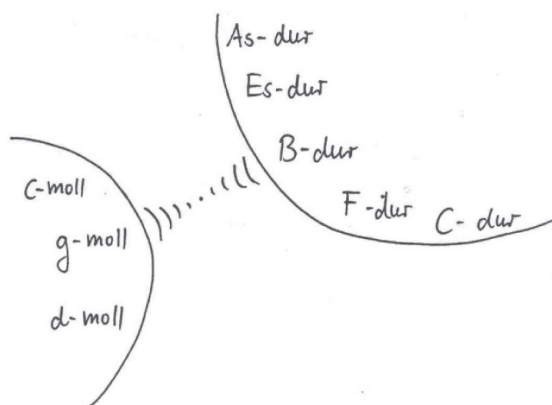 As-dur
Es-dur
B-dur
F-dur
C-dur
c-moll
g-moll
d-moll